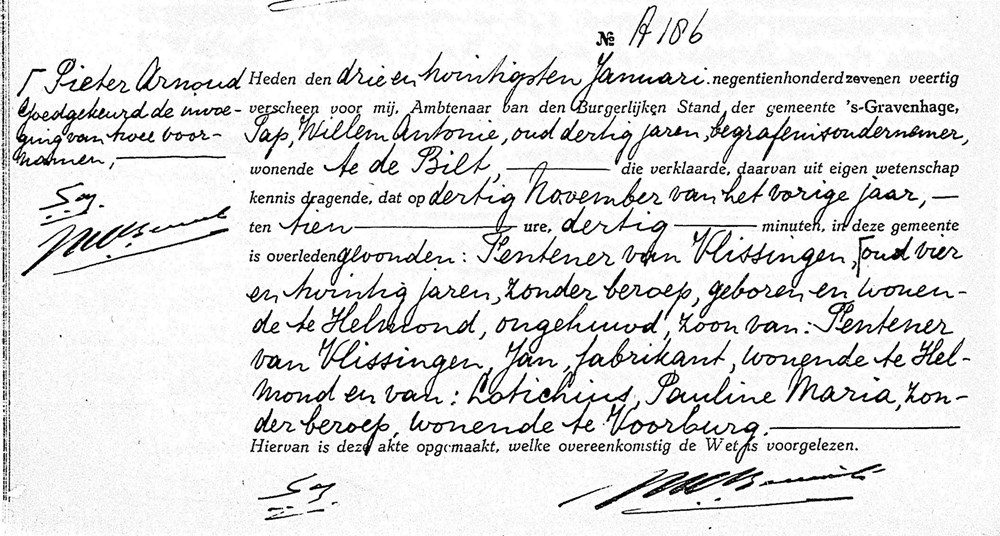 № A 186
⌈ Pieter Arnoud
Goedgekeurd de invoe-
ging van twee voor-
namen,
Heden den drie en twintigsten Januari negentienhonderd zevenen veertig
verscheen voor mij, Ambtenaar van den Burgerlijken Stand der gemeente 's-Gravenhage,
Tap, Willem Antonie, oud dertig jaren, begrafenisondernemer,
wonende te de Bilt, die verklaarde, daarvan uit eigen wetenschap
kennis dragende, dat op dertig November van het vorige jaar,
ten tien ure, dertig minuten, in deze gemeente
is overleden gevonden: Fentener van Vlissingen, ⌈oud vier
en twintig jaren, zonder beroep, geboren en wonen-
de te Helmond, ongehuwd, zoon van: Fentener
van Vlissingen, Jan, fabrikant, wonende te Hel-
mond en van: Lotichius, Pauline Maria, zon-
der beroep, wonende te Voorburg.
Hiervan is deze akte opgemaakt, welke overeenkomstig de Wet is voorgelezen.